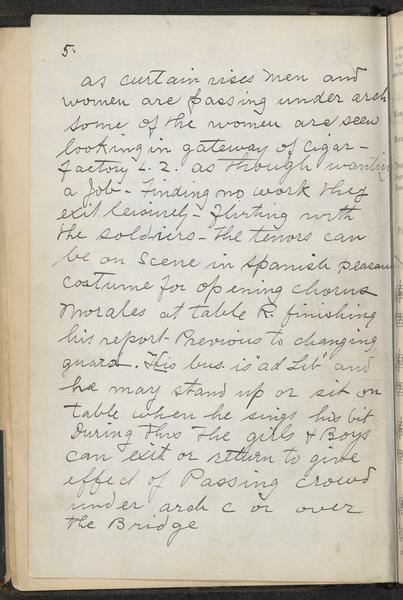 5.
as curtain rises men and
women are passing under arch
some of the women are seen
looking in gateway of Cigar-
factory L. 2. as though wanting
a Job - Finding no work they
exit leisurely - Flirting with
the soldiers - The tenors can
be on scene in Spanish peasan
costume for opening chorus
Morales at table R. finishing
his report Previous to changing
guard. His bus. is "ad Lib" and
he may stand up or sit on
table when he sings his bit
During this The girls & Boys
can exit or return to give
effect of Passing crowd
under arch C or over
the Bridge